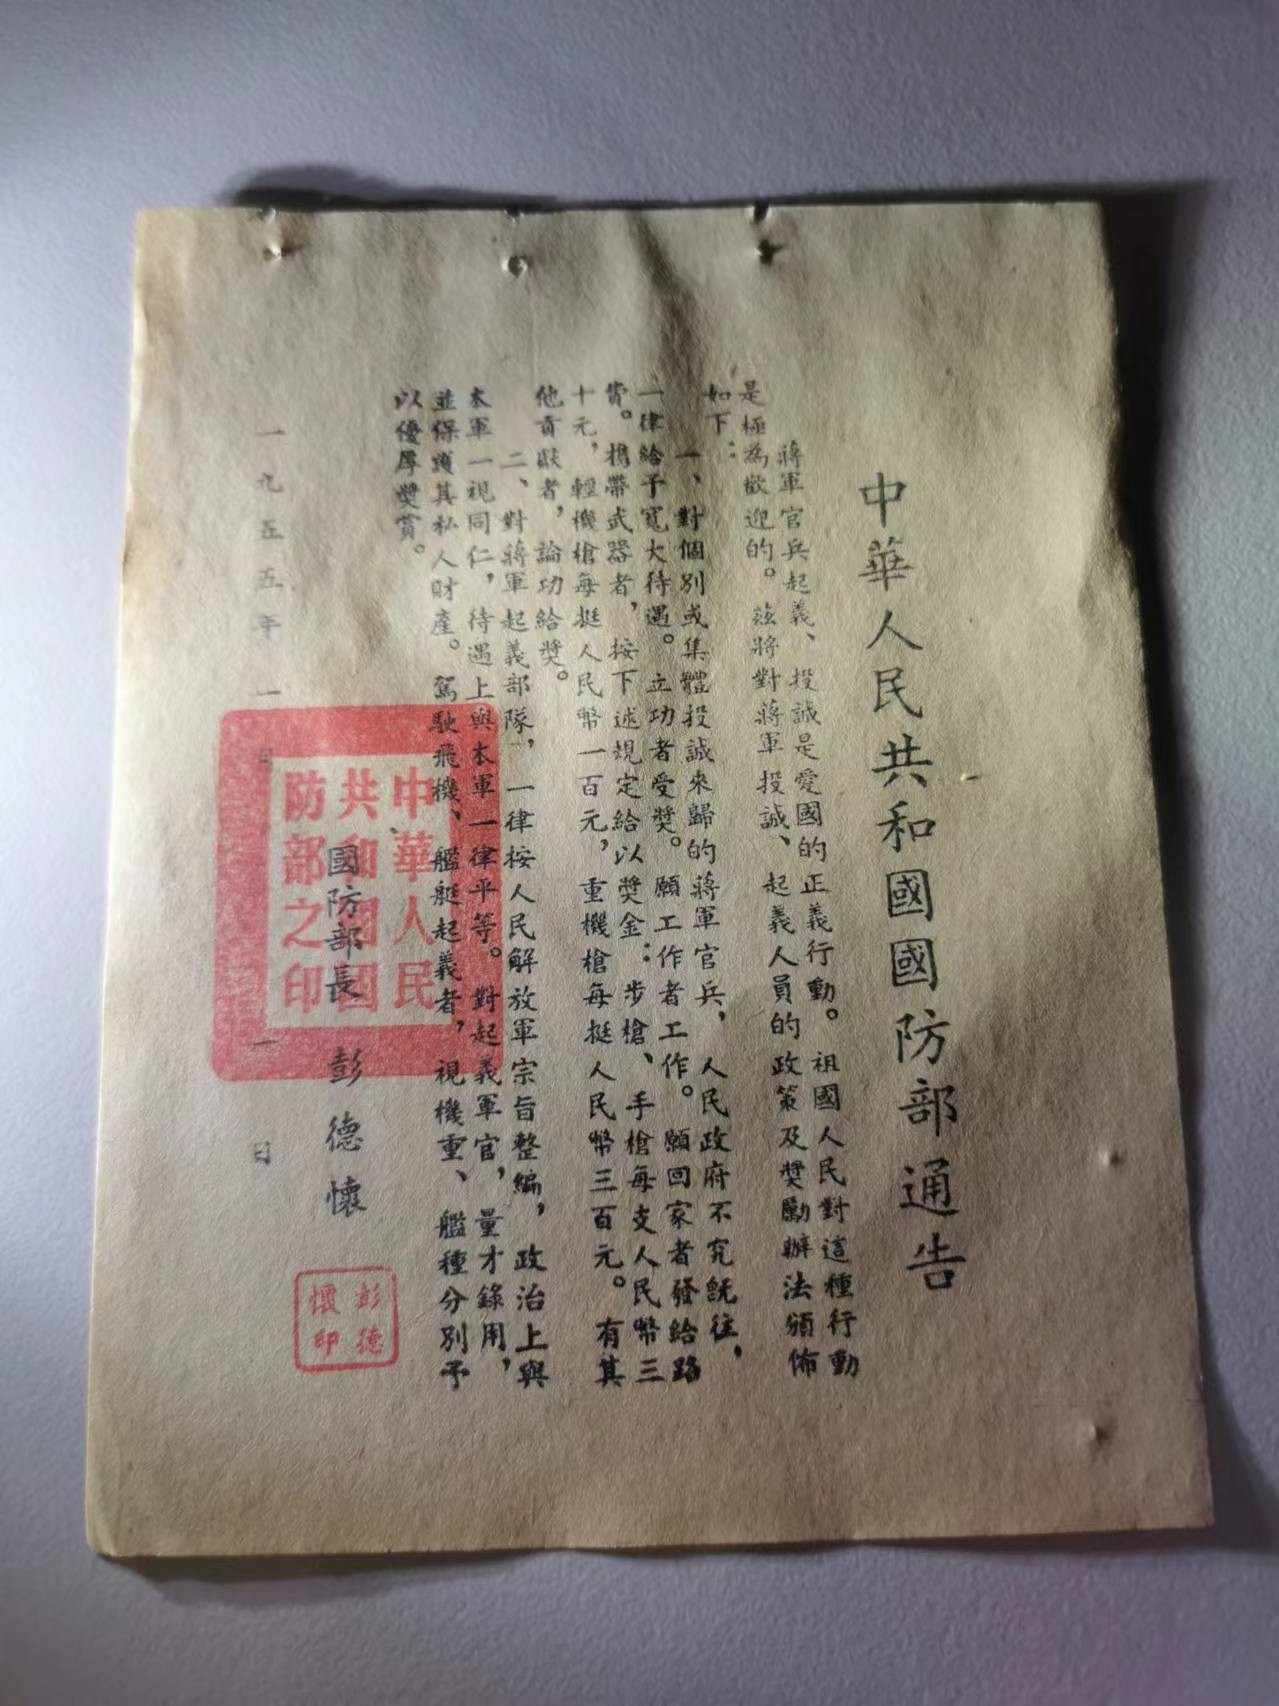 中華人民共和國國防部通告
蔣軍官兵起義、投誠是愛國的正義行動。祖國人民對這種行動
是極為歡迎的。茲將對蔣軍投誠、起義人員的政策及獎勵辦法頒佈
如下：
一、對個別或集體投誠來歸的蔣軍官兵，人民政府不究既往，
一律給予寬大待遇。立功者受獎。願工作者工作。願回家者發給路
費。攜帶武器者，按下述規定給以獎金：步槍、手槍每支人民幣三
十元，輕機槍每挺人民幣一百元，重機槍每挺人民幣三百元。有其
他貢獻者，論功給獎。
二、對蔣軍起義部隊，一律按人民解放軍宗旨整編，政治上與
本軍一視同仁，待遇上與本軍一律平等。對起義軍官，量才錄用，
並保護其私人財產。駕駛飛機、艦艇起義者，視機重、艦種分別予
以優厚獎賞。
國防部長 彭德懷
一九五五年一月 一 日
中華人民
共和國國
防部之印
彭德
懷印